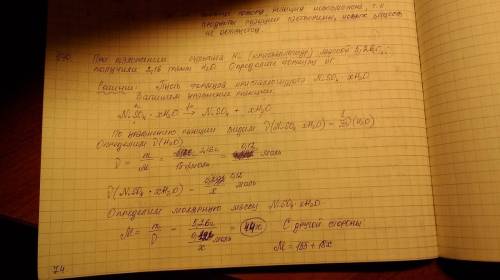 реакция невозможна, т.к.
продукты реакции растворимы, нового вещества
не образуется.
При разложении сульфата Ni (кристаллогидр.) массой 5,26г,
получили 2,16 грамм H₂O. Определите формулу
Решение: Пусть формула кристаллогидрата NiSO₄·xH₂O
Запишем уравнение реакции:
NiSO₄·xH₂O → NiSO₄ + xH₂O
По уравнению реакции видим ν(NiSO₄·xH₂O) = ν(H₂O)
Определим ν(H₂O)
ν = m/M = 2,16г / 18г/моль = 0,12 моль
ν(NiSO₄·xH₂O) = 0,12/x моль
Определим молярную массу NiSO₄·xH₂O
M = m/ν = 5,26г / моль/x = 44x С другой стороны
M = 155 + 18x
74